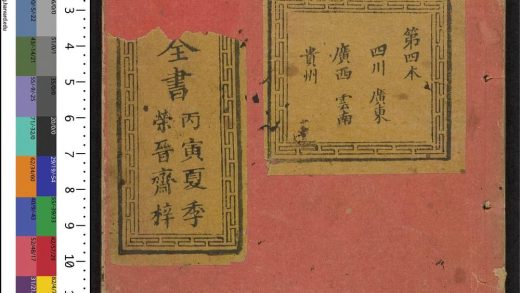 第四本
四川 廣東
廣西 雲南
貴州
全書
丙寅夏季
榮晉齋梓
3
4
5
6
7
8
9
10